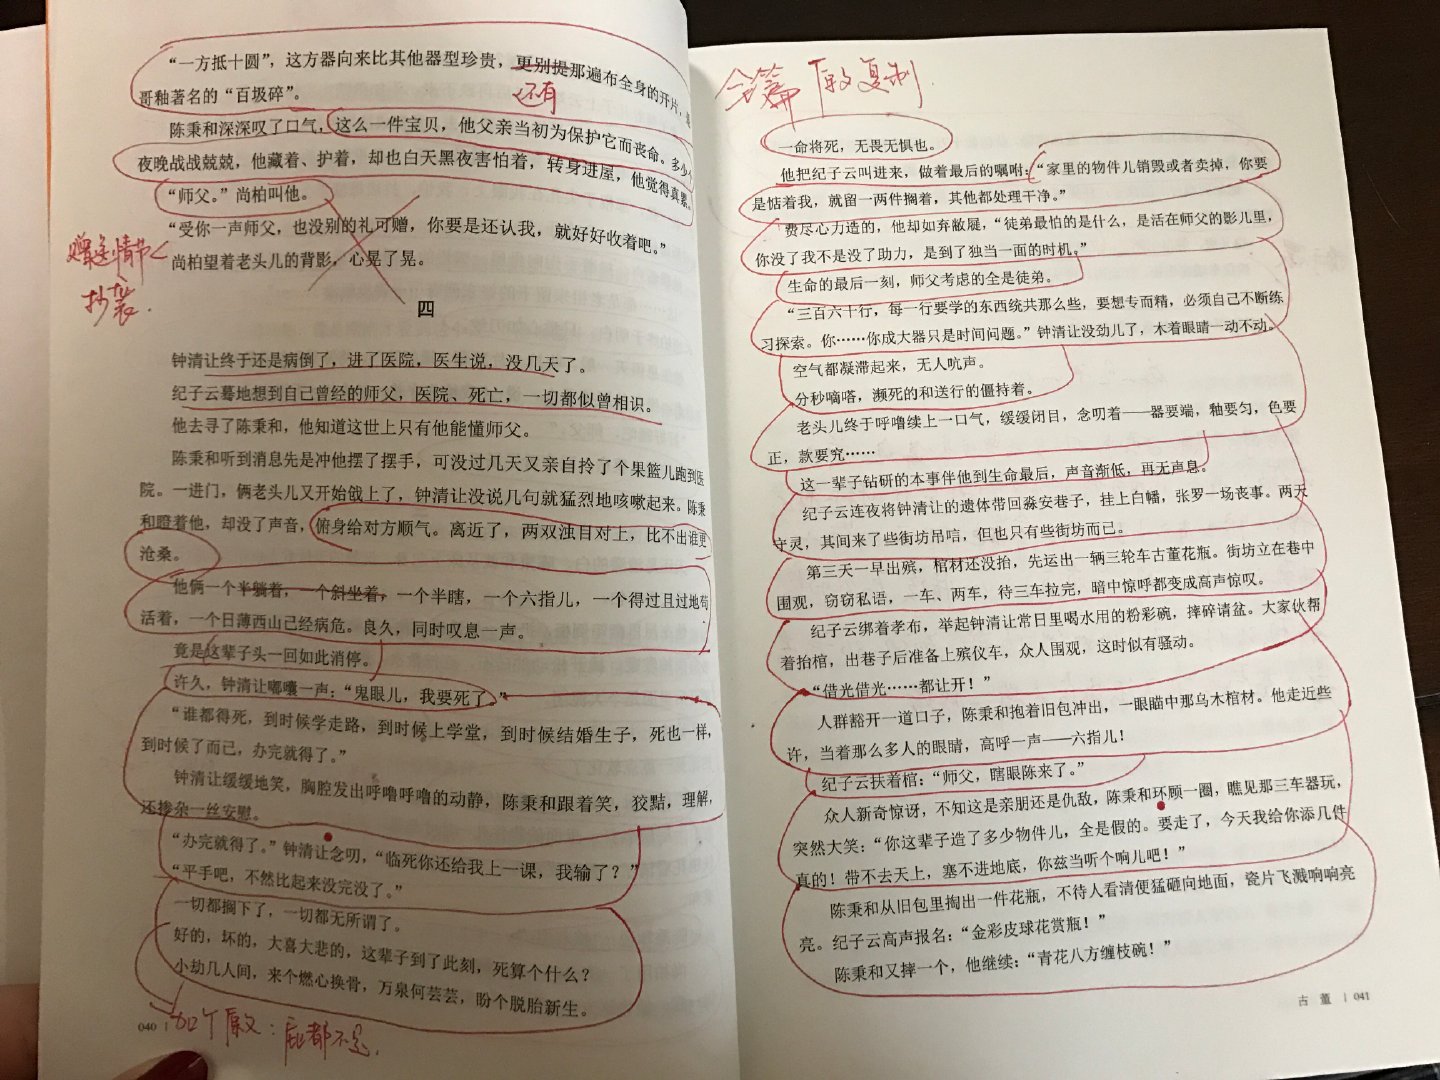 “一方抵十圆”，这方器向来比其他器型珍贵，更别提那遍布全身的开片，是
还有
哥釉著名的“百圾碎”。
陈秉和深深叹了口气，这么一件宝贝，他父亲当初为保护它而丧命。多少个
夜晚战战兢兢，他藏着、护着，却也白天黑夜害怕着，转身进屋，他觉得真累。
“师父。”尚柏叫他。
“受你一声师父，也没别的礼可赠，你要是还认我，就好好收着吧。”
尚柏望着老头儿的背影，心晃了晃。
赠送情节
抄袭.
四
钟清让终于还是病倒了，进了医院，医生说，没几天了。
纪子云蓦地想到自己曾经的师父，医院、死亡，一切都似曾相识。
他去寻了陈秉和，他知道这世上只有他能懂师父。
陈秉和听到消息先是冲他摆了摆手，可没过几天又亲自拎了个果篮儿跑到医
院。一进门，俩老头儿又开始戗上了，钟清让没说几句就猛烈地咳嗽起来。陈秉
和瞪着他，却没了声音，俯身给对方顺气。离近了，两双浊目对上，比不出谁更
沧桑。
他俩一个半躺着，一个斜坐着，一个半瞎，一个六指儿，一个得过且过地苟
活着，一个日薄西山已经病危。良久，同时叹息一声。
竟是这辈子头一回如此消停。
许久，钟清让嘟囔一声：“鬼眼儿，我要死了。”
“谁都得死，到时候学走路，到时候上学堂，到时候结婚生子，死也一样，
到时候了而已，办完就得了。”
钟清让缓缓地笑，胸腔发出呼噜呼噜的动静，陈秉和跟着笑，狡黠，理解，
还掺杂一丝安慰。
“办完就得了。”钟清让念叨，“临死你还给我上一课，我输了？”
“平手吧，不然比起来没完没了。”
一切都搁下了，一切都无所谓了。
好的，坏的，大喜大悲的，这辈子到了此刻，死算个什么？
小劫几人间，来个燃心换骨，万泉何芸芸，盼个脱胎新生。
040
加个原文：屁都不是.
全篇原文复制.
一命将死，无畏无惧也。
他把纪子云叫进来，做着最后的嘱咐：“家里的物件儿销毁或者卖掉，你要
是惦着我，就留一两件搁着，其他都处理干净。”
费尽心力造的，他却如弃敝屣，“徒弟最怕的是什么，是活在师父的影儿里，
你没了我不是没了助力，是到了独当一面的时机。”
生命的最后一刻，师父考虑的全是徒弟。
“三百六十行，每一行要学的东西统共那么些，要想专而精，必须自己不断练
习探索。你……你成大器只是时间问题。”钟清让没劲儿了，木着眼睛一动不动。
空气都凝滞起来，无人吭声。
分秒嘀嗒，濒死的和送行的僵持着。
老头儿终于呼噜续上一口气，缓缓闭目，念叨着——器要端，釉要匀，色要
正，款要究……
这一辈子钻研的本事伴他到生命最后，声音渐低，再无声息。
纪子云连夜将钟清让的遗体带回淼安巷子，挂上白幡，张罗一场丧事。两天
守灵，其间来了些街坊吊唁，但也只有些街坊而已。
第三天一早出殡，棺材还没抬，先运出一辆三轮车古董花瓶。街坊立在巷中
围观，窃窃私语，一车、两车，待三车拉完，暗中惊呼都变成高声惊叹。
纪子云绑着孝布，举起钟清让常日里喝水用的粉彩碗，摔碎请盆。大家伙帮
着抬棺，出巷子后准备上殡仪车，众人围观，这时似有骚动。
“借光借光……都让开！”
人群豁开一道口子，陈秉和抱着旧包冲出，一眼瞄中那乌木棺材。他走近些
许，当着那么多人的眼睛，高呼一声——六指儿！
纪子云扶着棺：“师父，瞎眼陈来了。”
众人新奇惊讶，不知这是亲朋还是仇敌，陈秉和环顾一圈，瞧见那三车器玩，
突然大笑：“你这辈子造了多少物件儿，全是假的。要走了，今天我给你添几件
真的！带不去天上，塞不进地底，你兹当听个响儿吧！”
陈秉和从旧包里掏出一件花瓶，不待人看清便猛砸向地面，瓷片飞溅响响亮
亮。纪子云高声报名：“金彩皮球花赏瓶！”
陈秉和又摔一个，他继续：“青花八方缠枝碗！”
古 董 | 041